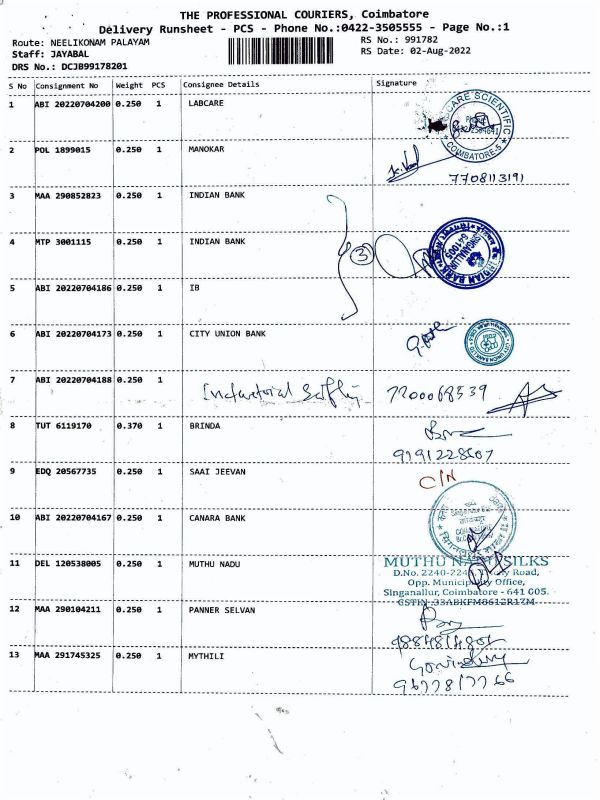 THE PROFESSIONAL COURIERS, Coimbatore
Delivery Runsheet - PCS - Phone No.:0422-3505555 - Page No.:1
Route: NEELIKONAM PALAYAM
Staff: JAYABAL
DRS No.: DCJB99178201
RS No.: 991782
RS Date: 02-Aug-2022
S No Consignment No Weight PCS Consignee Details Signature
1 ABI 20220704200 0.250 1 LABCARE
CARE SCIENTIFIC
COIMBATORE-5
2 POL 1899015 0.250 1 MANOKAR
7708113191
3 MAA 290852823 0.250 1 INDIAN BANK
4 MTP 3001115 0.250 1 INDIAN BANK
3
INDIAN BANK
641005
5 ABI 20220704186 0.250 1 IB
6 ABI 20220704173 0.250 1 CITY UNION BANK
7 ABI 20220704188 0.250 1
7200068539
8 TUT 6119170 0.370 1 BRINDA
9 EDQ 20567735 0.250 1 SAAI JEEVAN
10 ABI 20220704167 0.250 1 CANARA BANK
11 DEL 120538005 0.250 1 MUTHU NADU
MUTHU SILKS
D.No. 2240-224 Road,
Opp. Municipality Office,
Singanallur, Coimbatore - 641 005.
12 MAA 290104211 0.250 1 PANNER SELVAN
13 MAA 291745325 0.250 1 MYTHILI